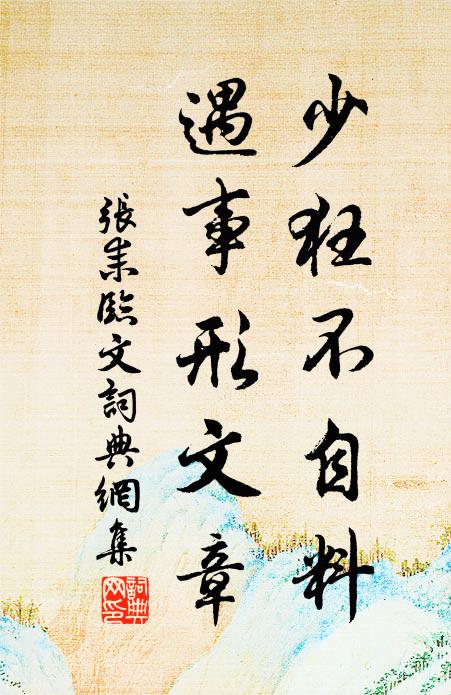 少狂不自料
遇事形文章
張耒臨文詞典網集
詞典網印